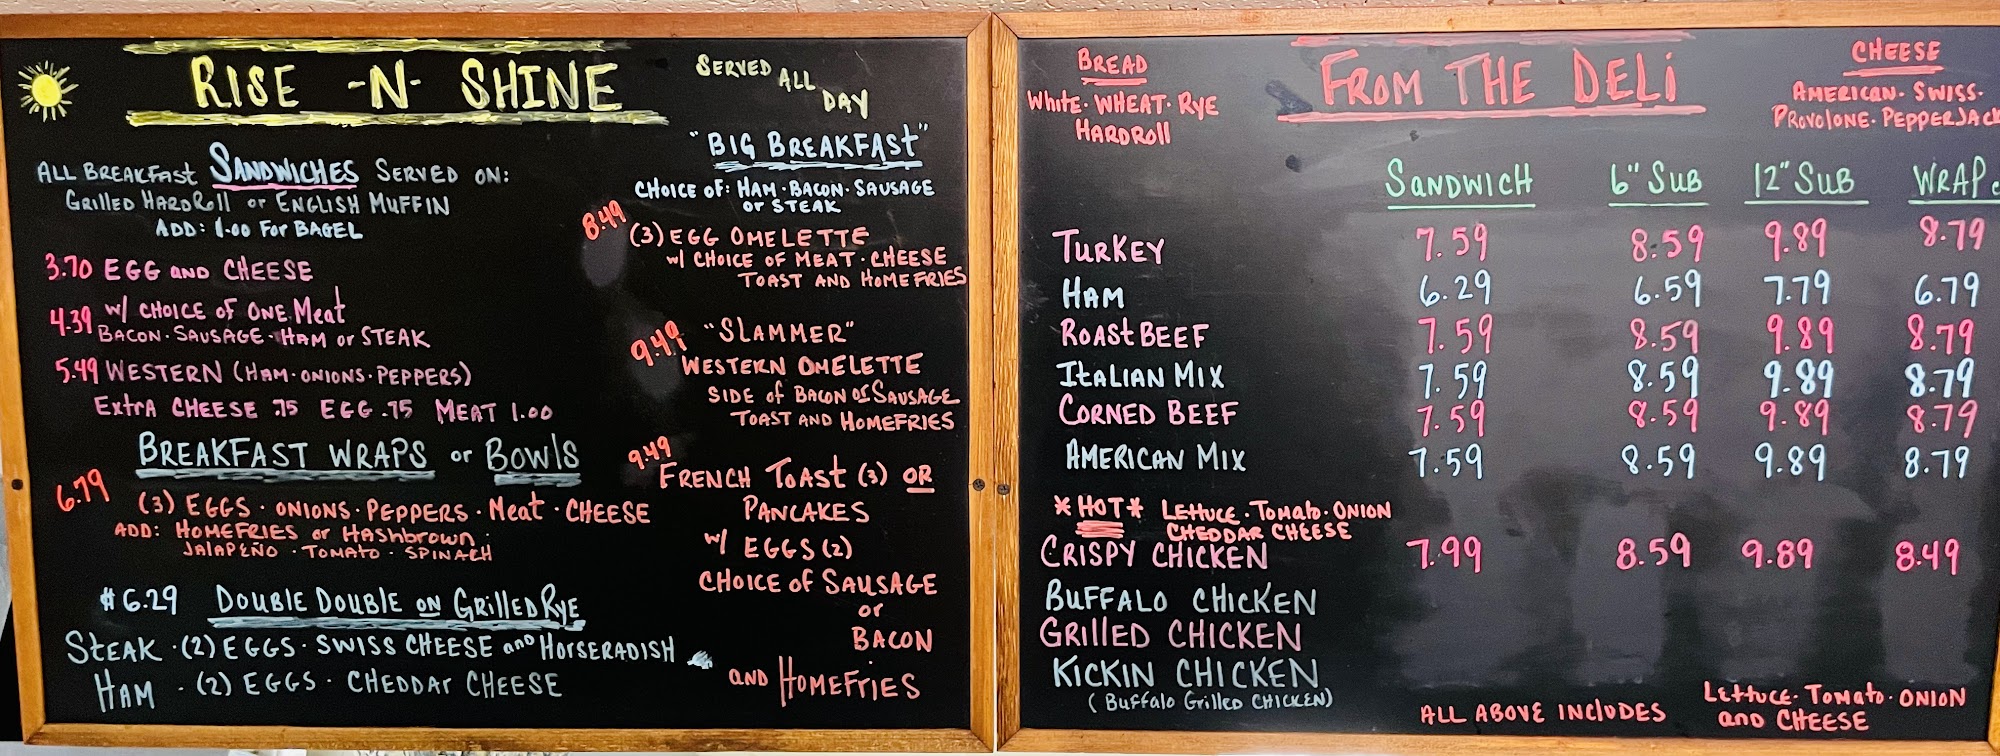 RISE -N- SHINE
SERVED ALL DAY
ALL BREAKFAST SANDWICHES SERVED ON:
GRILLED HARDROLL or ENGLISH MUFFIN
ADD: 1.00 FOR BAGEL
3.70 EGG AND CHEESE
4.39 w/ CHOICE OF ONE MEAT
BACON · SAUSAGE · HAM or STEAK
5.49 WESTERN (HAM · ONIONS · PEPPERS)
EXTRA CHEESE .75 EGG .75 MEAT 1.00
BREAKFAST WRAPS or BOWLS
6.79 (3) EGGS · ONIONS · PEPPERS · MEAT · CHEESE
ADD: HOMEFRIES or HASHBROWN ·
JALAPEÑO · TOMATO · SPINACH
$6.29 DOUBLE DOUBLE ON GRILLED RYE
STEAK · (2) EGGS · SWISS CHEESE AND HORSERADISH
HAM · (2) EGGS · CHEDDAR CHEESE
"BIG BREAKFAST"
CHOICE OF: HAM · BACON · SAUSAGE
or STEAK
8.49 (3) EGG OMELETTE
w/ CHOICE OF MEAT · CHEESE
TOAST AND HOMEFRIES
9.49 "SLAMMER"
WESTERN OMELETTE
SIDE OF BACON OR SAUSAGE
TOAST AND HOMEFRIES
9.49 FRENCH TOAST (3) OR
PANCAKES
w/ EGGS (2)
CHOICE OF SAUSAGE
or
BACON
AND HOMEFRIES
BREAD
WHITE · WHEAT · RYE
HARDROLL
FROM THE DELI
CHEESE
AMERICAN · SWISS ·
PROVOLONE · PEPPERJACK
SANDWICH 6" SUB 12" SUB WRAP
TURKEY 7.59 8.59 9.89 8.79
HAM 6.29 6.59 7.79 6.79
ROAST BEEF 7.59 8.59 9.89 8.79
ITALIAN MIX 7.59 8.59 9.89 8.79
CORNED BEEF 7.59 8.59 9.89 8.79
AMERICAN MIX 7.59 8.59 9.89 8.79
*HOT* LETTUCE · TOMATO · ONION
CHEDDAR CHEESE
CRISPY CHICKEN 7.99 8.59 9.89 8.49
BUFFALO CHICKEN
GRILLED CHICKEN
KICKIN CHICKEN
(BUFFALO GRILLED CHICKEN)
ALL ABOVE INCLUDES
LETTUCE · TOMATO · ONION
AND CHEESE